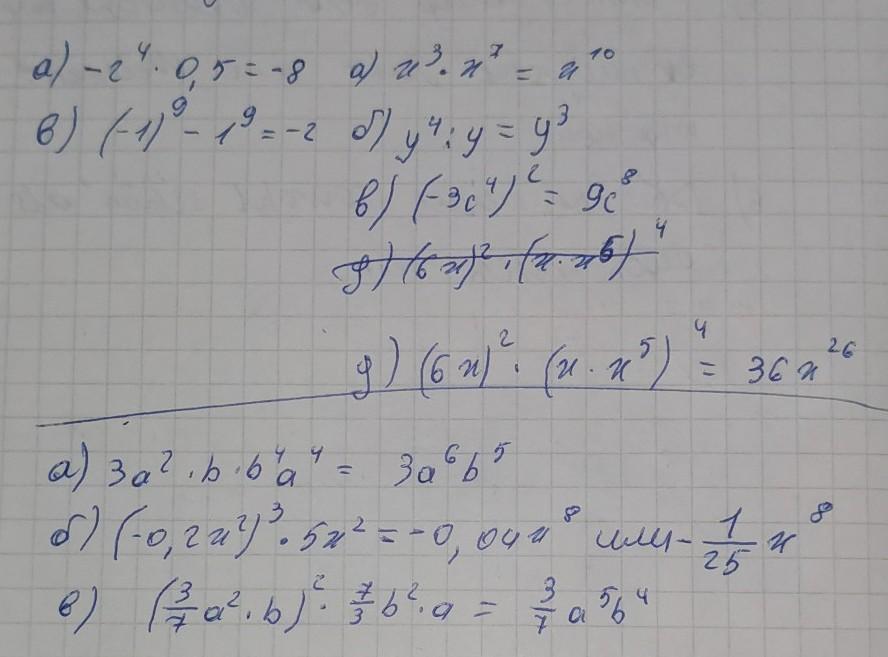 а) -2⁴ · 0,5 = -8 а) x³ · x⁷ = x¹⁰
в) (-1)⁹ - 1⁹ = -2 б) y⁴ : y = y³
в) (-3c⁴)² = 9c⁸
д) (6x)² · (x · x⁵)⁴
д) (6x)² · (x · x⁵)⁴ = 36x²⁶
а) 3a² · b · b⁴a⁴ = 3a⁶b⁵
б) (-0,2x²)³ · 5x² = -0,04x⁸ или -1/25 x⁸
в) (3/7 a² · b)² · 7/3 b² · a = 3/7 a⁵b⁴